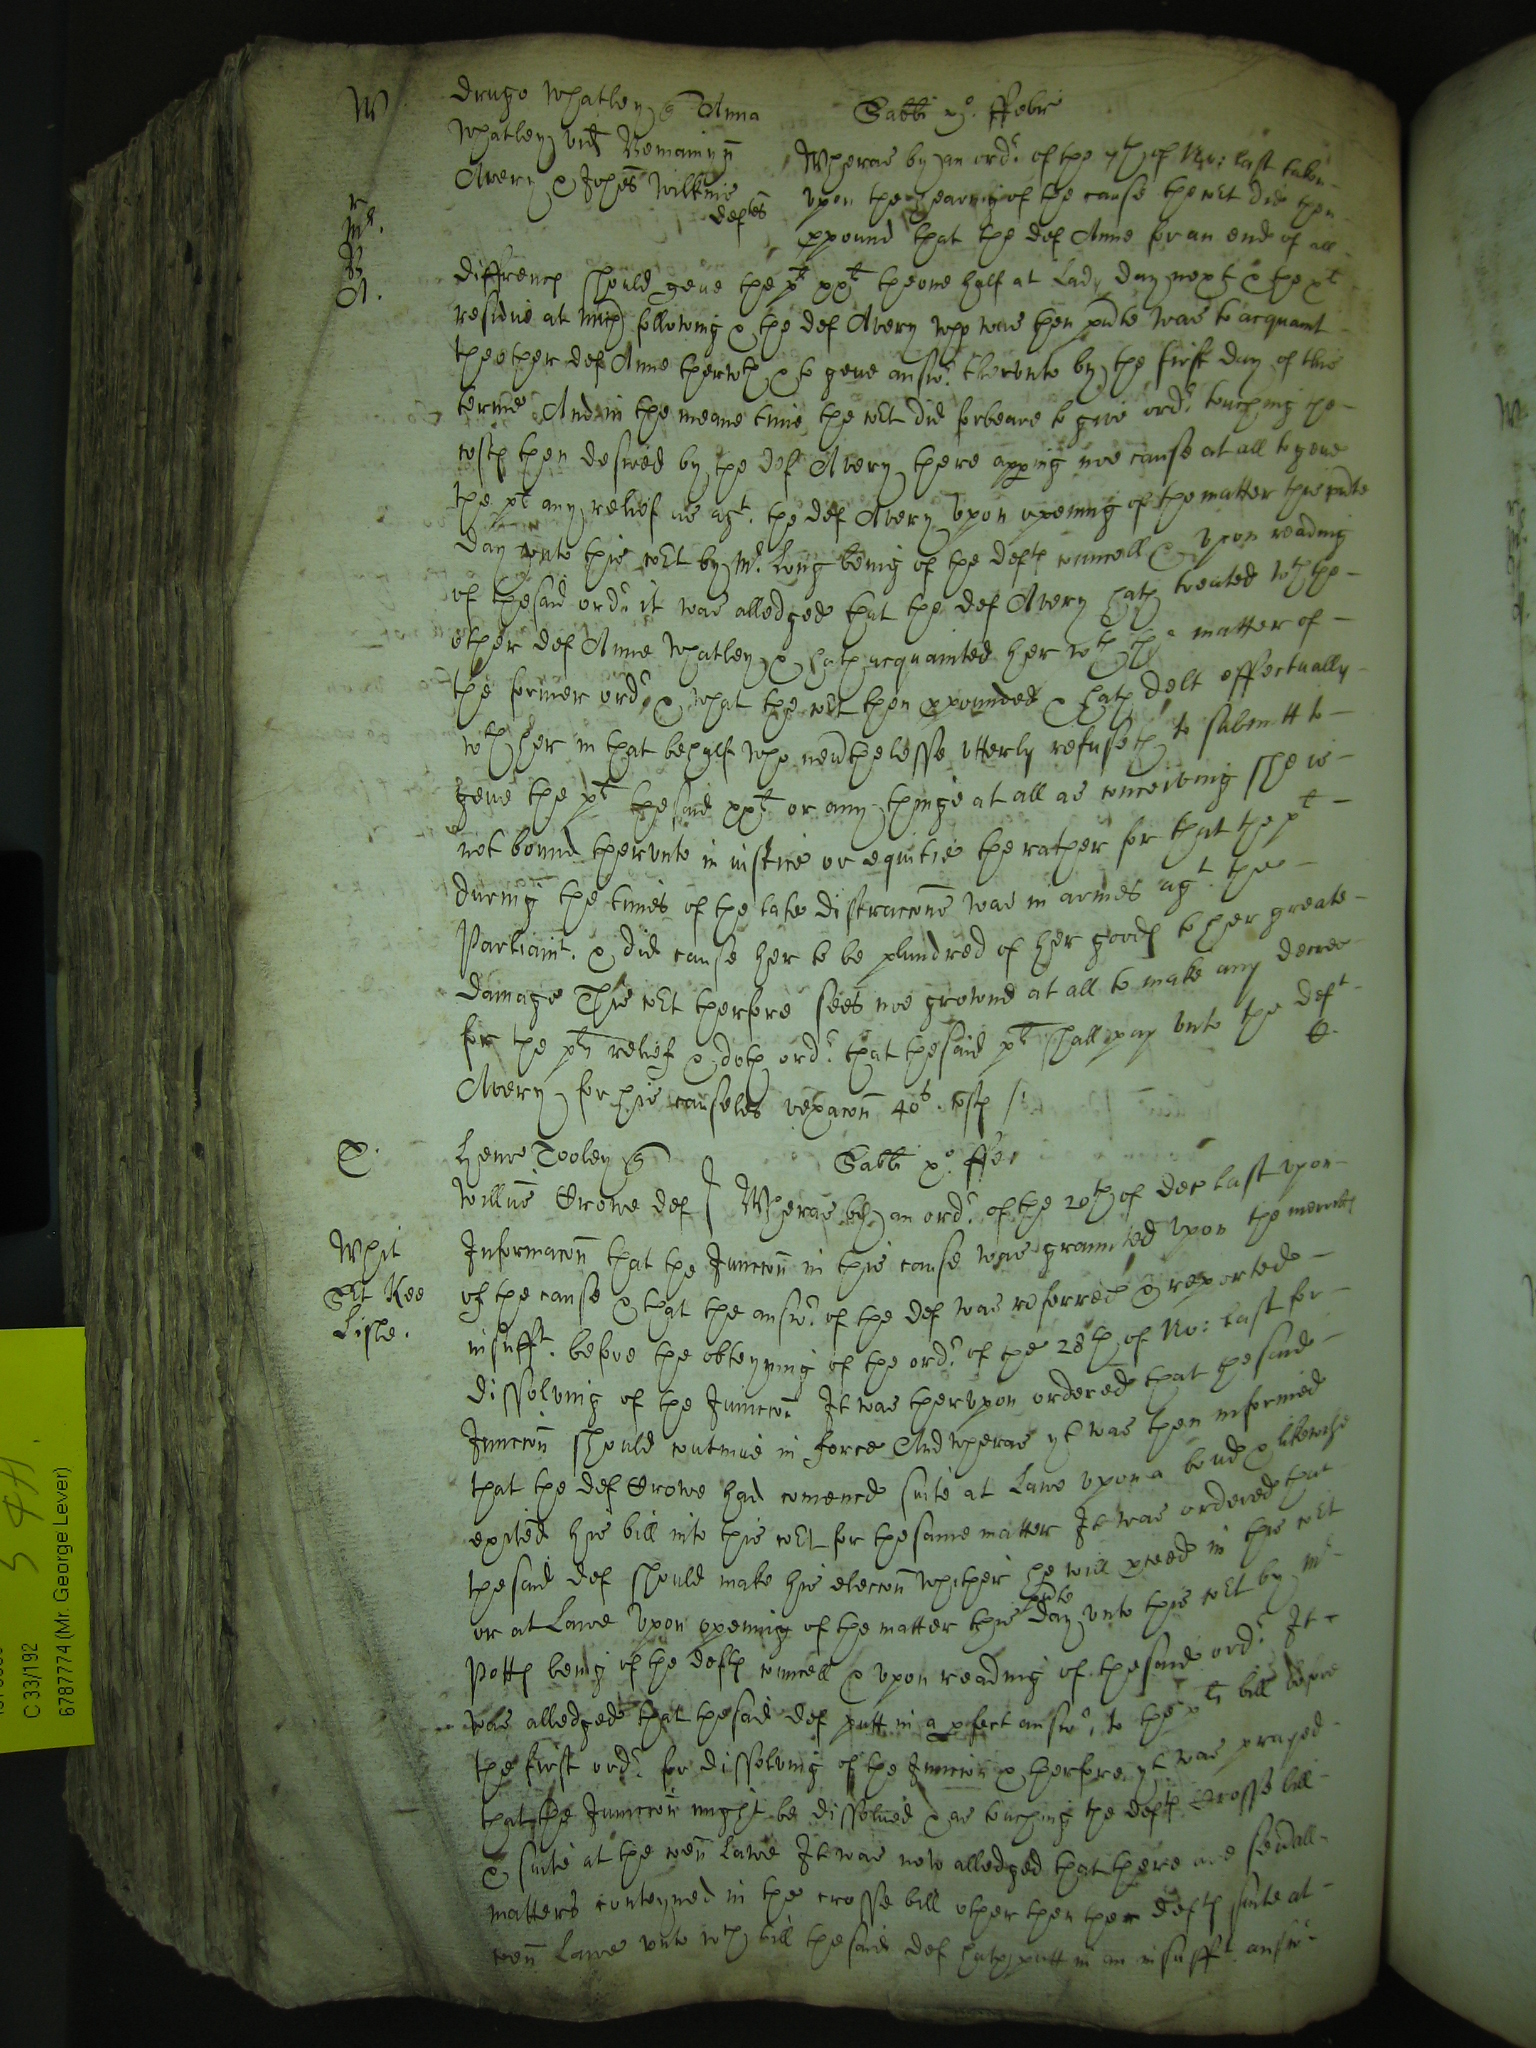 W Drugo Whatley q Anna Sabbti xo. ffebr
Whatley vid Beniamyn Wheras by an ordr. of the 7th of No: last taken
Avery & Johes Wilkins deftes upon the hearing of the cause the cot did then
ppound that the def Anne for an end of all
R
Mr.
A.
difference should geve the plt xxli the one half at Lady day next & the xli
residue at Mich following & the def Avery who was then pnte was to acquaint
the other def Anne therwth & to geve answr. therunto by the first day of this
terme And in the meane time the cot did forbeare to give ordr. touching the
costs then desired by the def Avery there apping noe cause at all to geve
the plt any relief as agt. the def Avery Upon opening of the matter this pnte
day unto this cot by Mr. Long being of the defts councell & upon reading
of the said ordr. it was alledged that the def Avery hath treated wth the
other def Anne Whatley & hath acquainted her wth the matter of
the former ordr. & what the cot then ppounded & hath delt effectually
wth her in that behalf who nevthelesse utterly refuseth to submitt to
geve the plt the said xxli or any thinge at all as conceiving she is
not bound therunto in iustice or equitie the rather for that the plt
during the times of the late distraccons was in armes agt. the
Parliamt. & did cause her to be plundred of her goods to her greate
damage This cot therfore sees noe grownd at all to make any decree
for the plts relief & doth ordr. that the said plt shall pay unto the deft
Avery for his causeles vexacon 40s. costs
T. Henr Tooley q Sabbti xo. ffe
Willm Crowe def Wheras by an ordr. of the 20th of Dec last upon
Informacon that the Junccon in this cause was graunted upon the meritts
Whit
Kee
Lisle.
of the cause & that the answr. of the def was referred & reported
insufft. before the obteyning of the ordr. of the 28th of No: last for
dissolving of the Junccon It was therupon ordered that the said
Junccon should continue in force And wheras yt was then informed
that the def Crowe had comenced suite at Lawe upon a bond & likewise
exited his bill into this cot for the same matter It was ordered that
the said def should make his eleccon whither he will pceed in this cot
or at Lawe Upon opening of the matter this pnte day unto this cot by Mr
Potts being of the defts councell & upon reading of the said ordr. It
was alledged that the said def putt in a pfect answr. to the plts bill before
the first ordr. for dissolving of the Junccon & therfore yt was prayed
that the Junccon might be dissolved & as touching the defts Crosse bill
& suite at the comn Lawe It was now alledged that there are sevall
matters conteyned in the crosse bill other then the defts suite at
comn Lawe unto wch bill the said def hath putt in an insufft. answr
C 33/192
6787774 (Mr. George Lever)